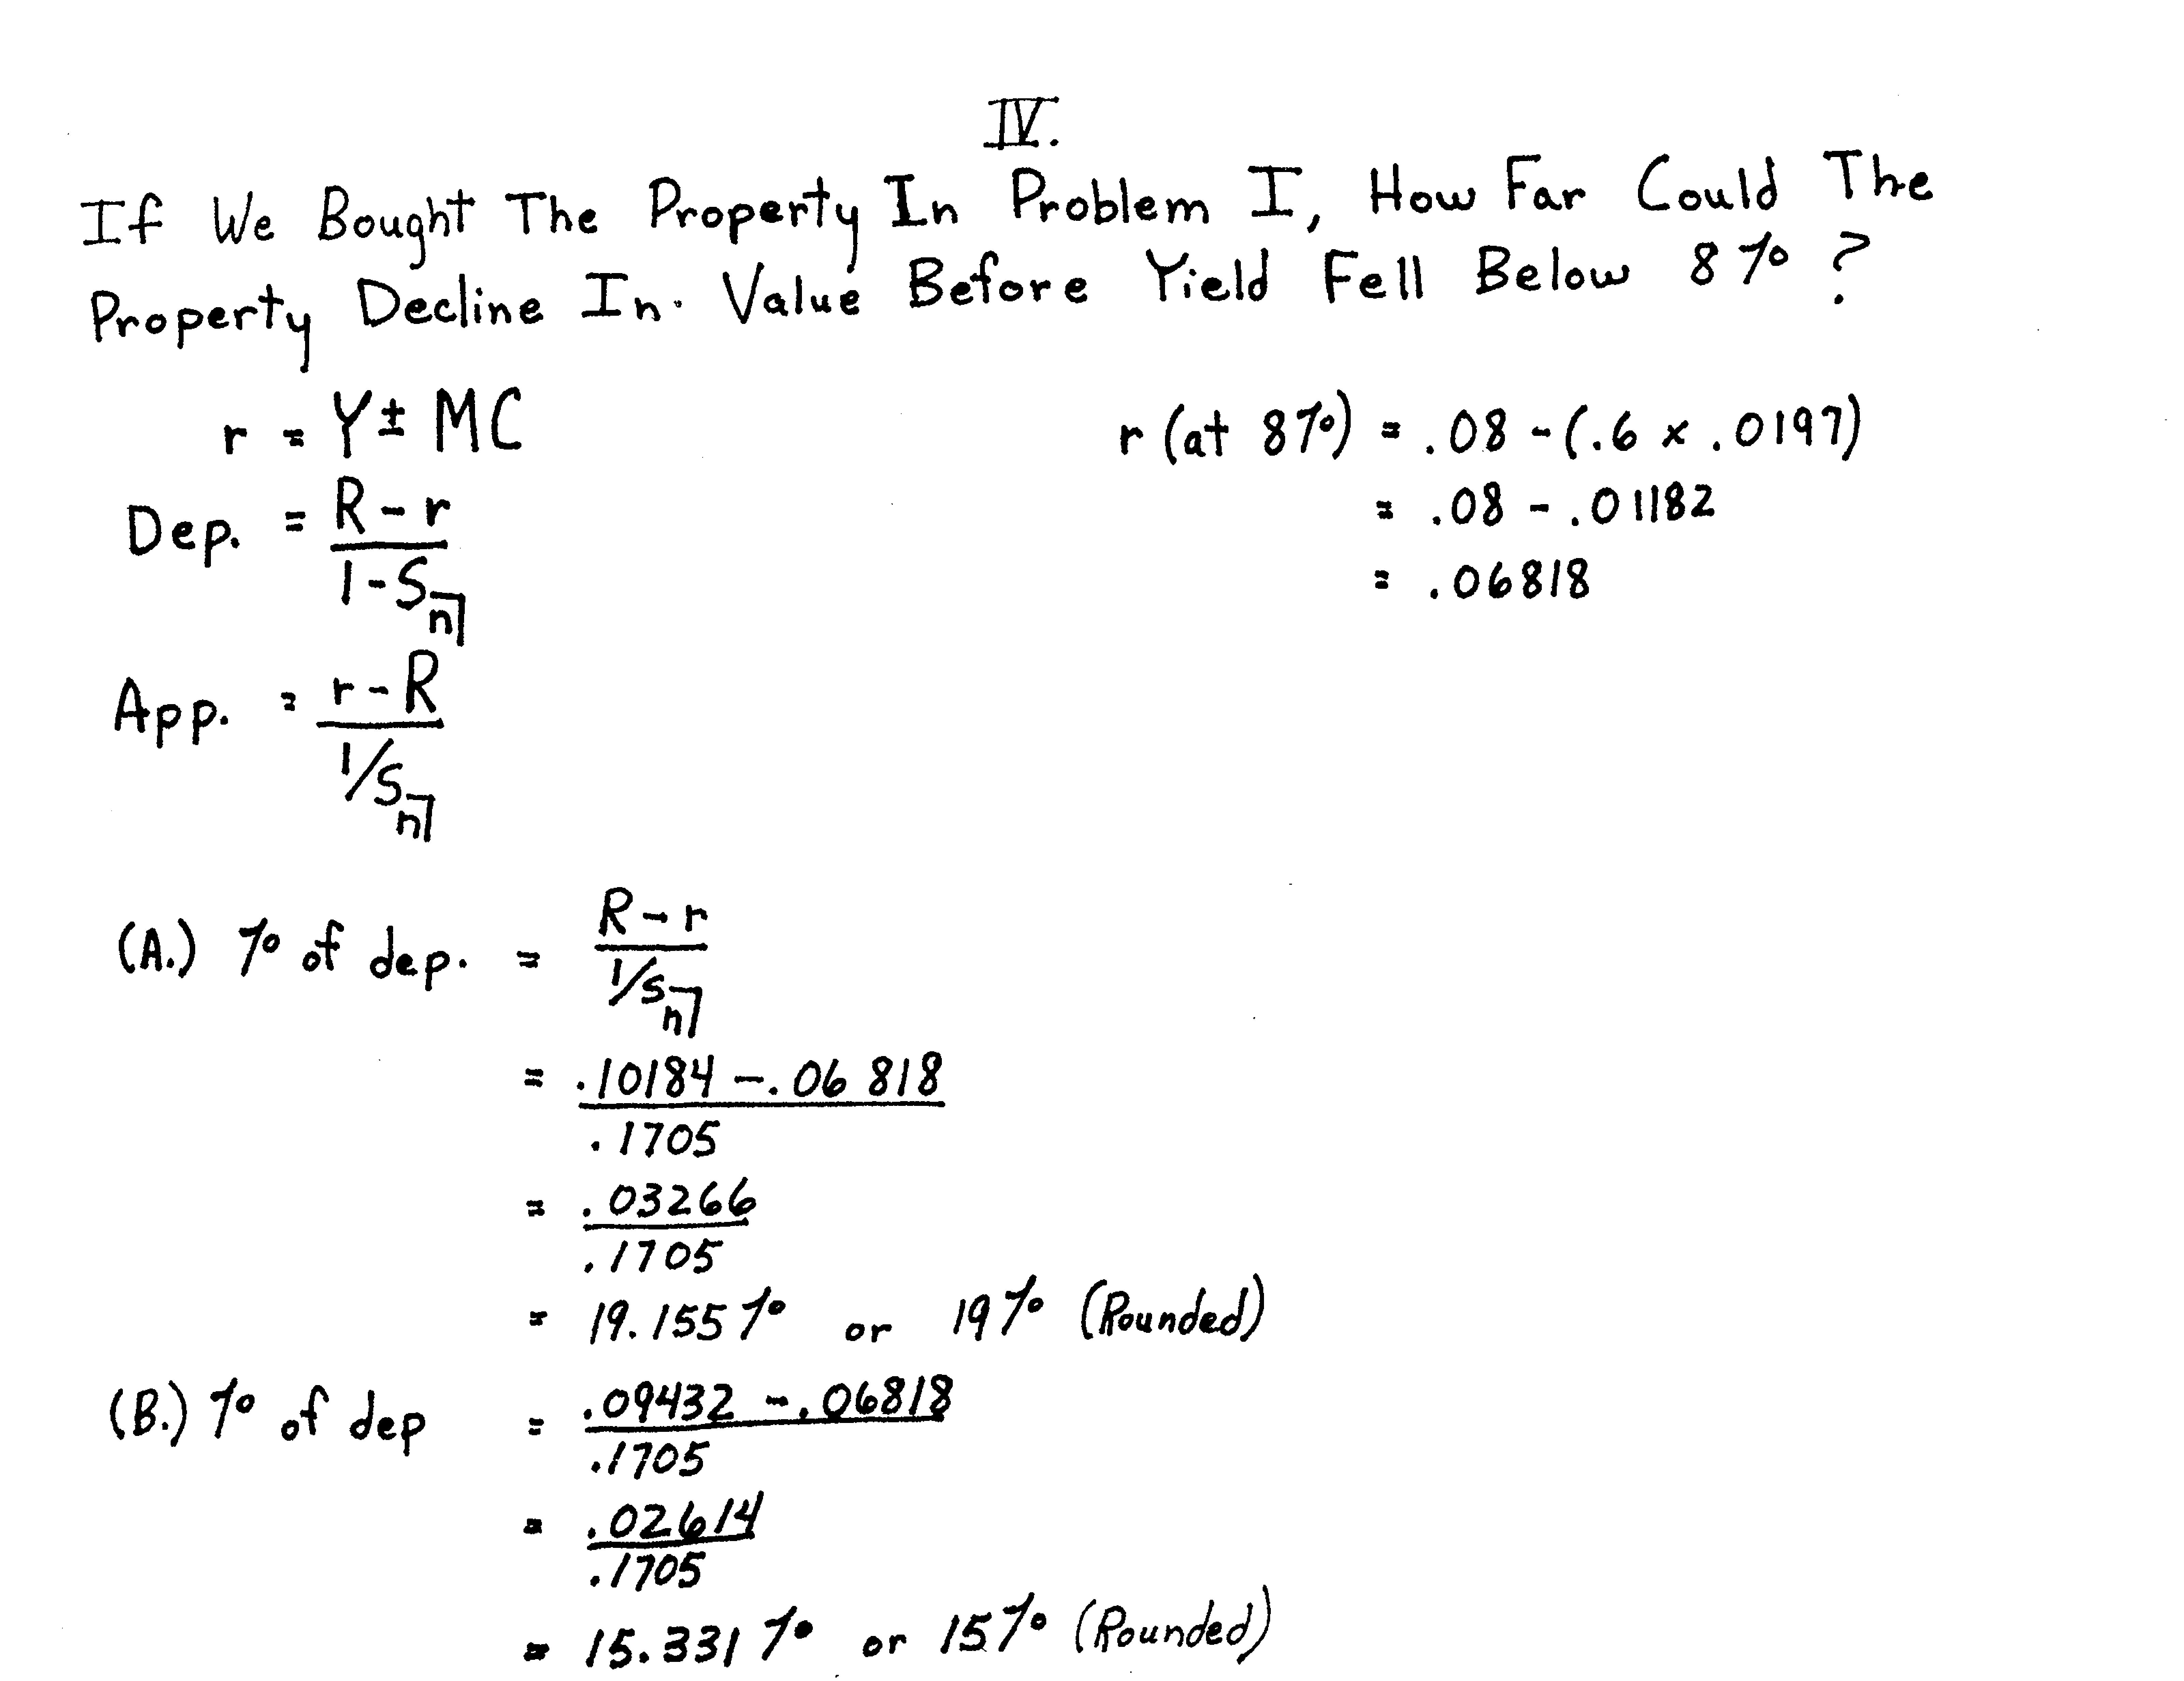 IV.
If We Bought The Property In Problem I, How Far Could The
Property Decline In. Value Before Yield Fell Below 8% ?
r = Y ± MC
r (at 8%) = .08 - (.6 x .0197)
= .08 - .01182
= .06818
Dep. = R - r
1 - Sn⌉
App. = r - R
1/Sn⌉
(A.) % of dep. = R - r
1/Sn⌉
= .10184 - .06818
.1705
= .03266
.1705
= 19.155% or 19% (Rounded)
(B.) % of dep = .09432 - .06818
.1705
= .02614
.1705
= 15.331% or 15% (Rounded)